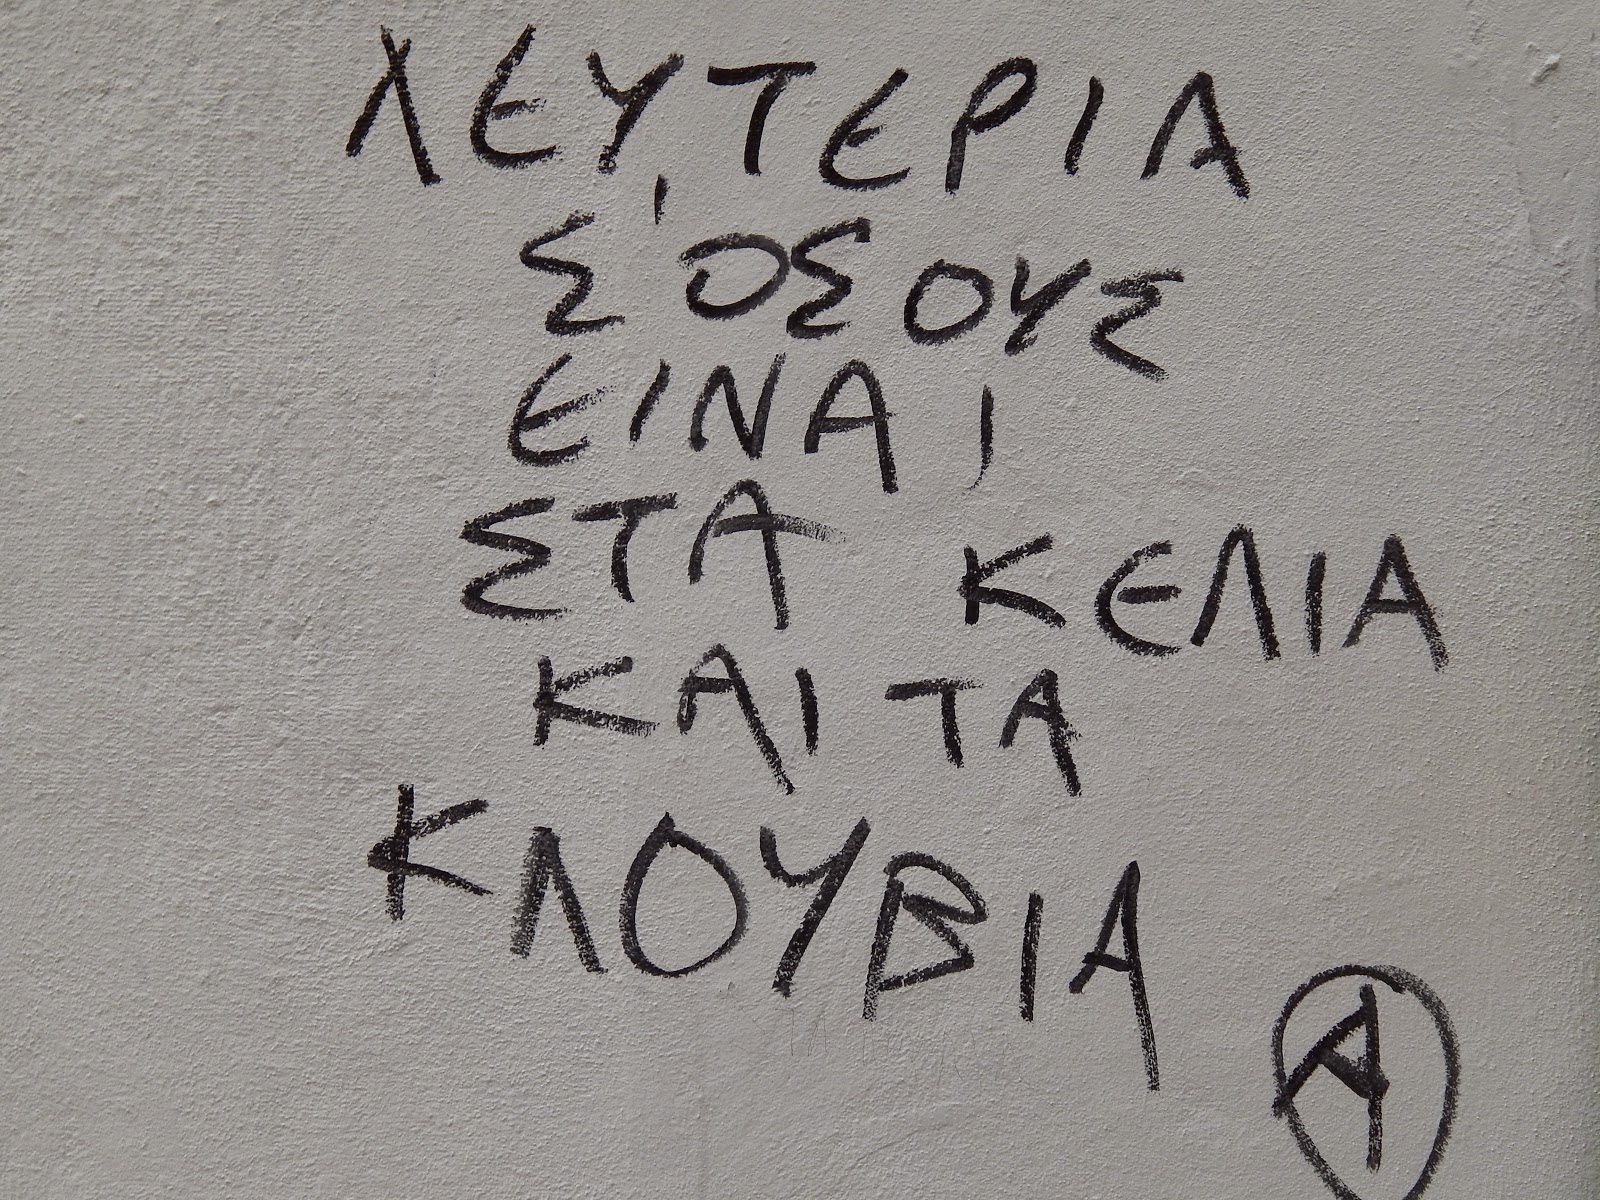 ΛΕΥΤΕΡΙΑ
Σ'ΟΣΟΥΣ
ΕΙΝΑΙ
ΣΤΑ ΚΕΛΙΑ
ΚΑΙ ΤΑ
ΚΛΟΥΒΙΑ
Ⓐ